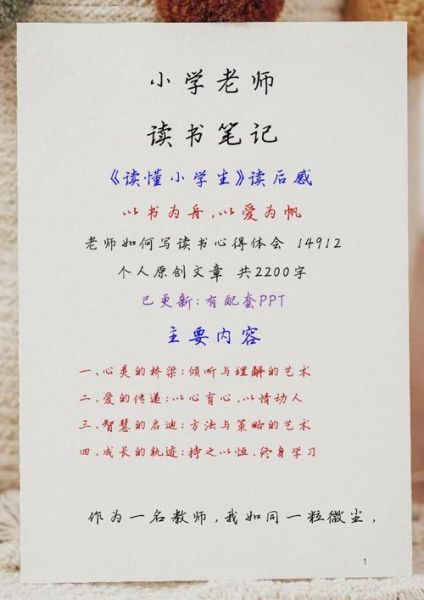 小学老师
读书笔记
《读懂小学生》读后感
以书为舟,以爱为帆
老师如何写读书心得体会 14912
个人原创文章 共2200字
已更新:有配套PPT
主要内容
一、心灵的桥梁:倾听与理解的艺术
二、爱的传递:以心育心,以情动人
三、智慧的启迪:方法与策略的艺术
四、成长的轨迹:持之以恒,终身学习
作为一名教师,我如同一粒微尘,
1